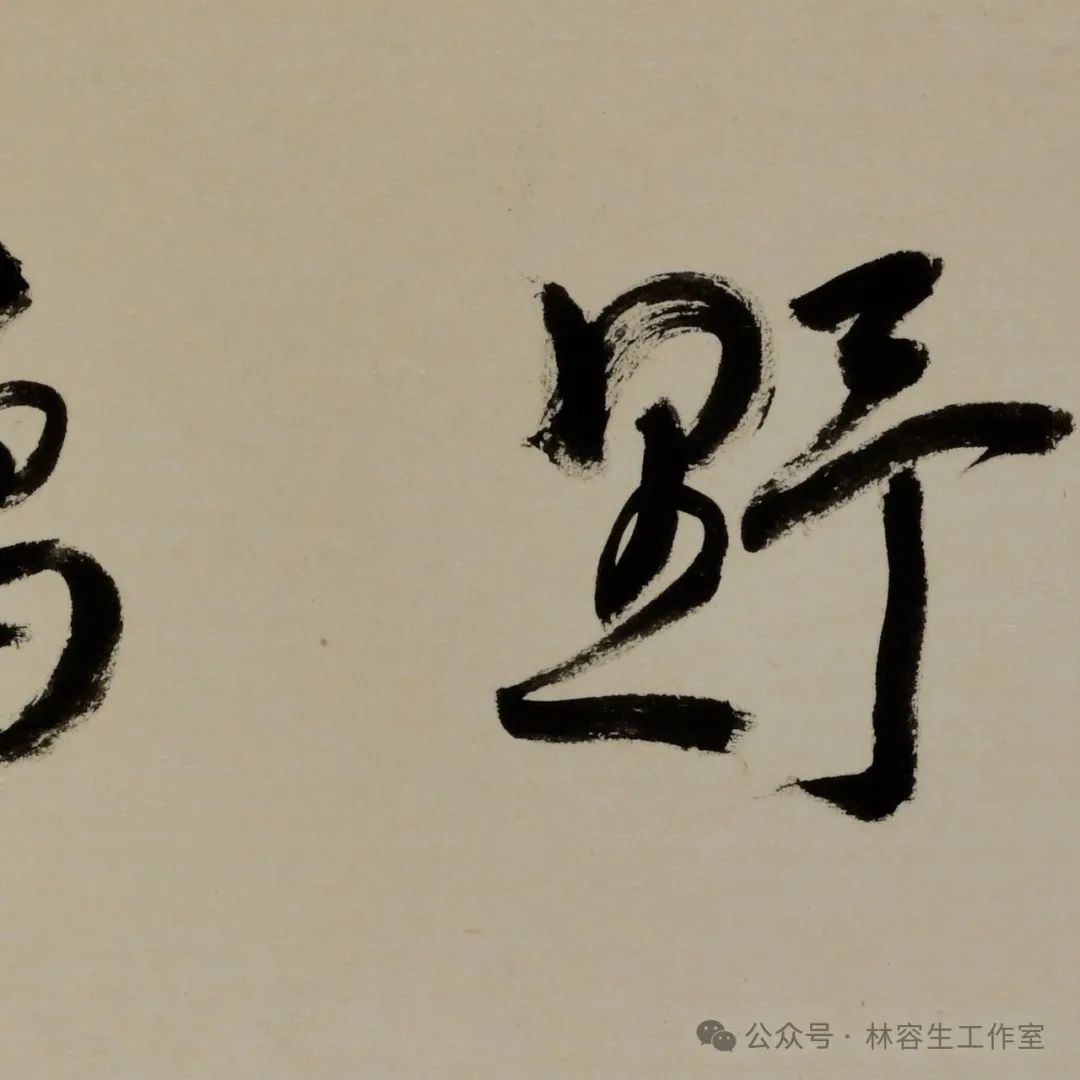 野
公众号·林容生工作室